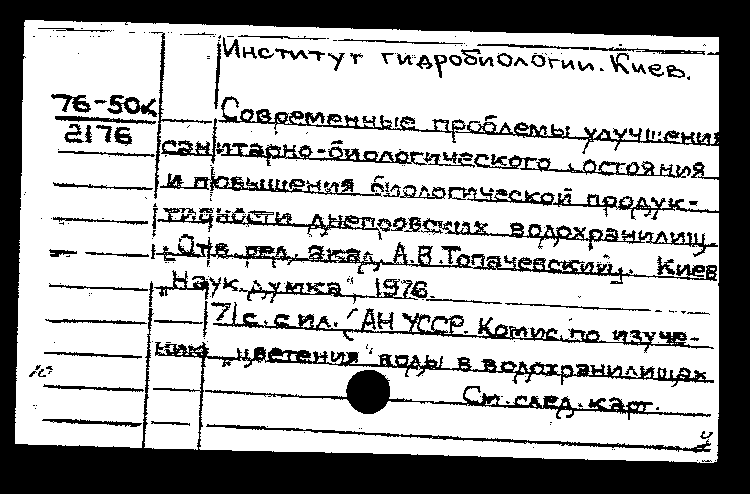 Институт гидробиологии. Киев.
76-50к
2176
Современные проблемы улучшения
санитарно-биологического состояния
и повышения биологической продук-
тивности днепровских водохранилищ.
[Отв. ред. акад. А.В. Топачевский]. Киев
"Наук. думка", 1976.
71 с. с ил. (АН УССР. Комис. по изуче-
нию "цветения" воды в водохранилищах
См. след. карт.